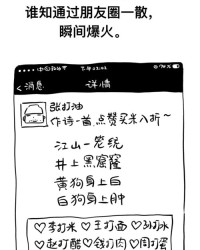 谁知通过朋友圈一散，
瞬间爆火。
中国移动
70%
<消息
详情
张打油
作诗一首，点赞买米八折~
江山一笼统
井上黑窟窿
黄狗身上白
白狗身上肿
♡李打米♡王打面♡孙打冰
♡赵打醋♡钱打肉♡周打蛋